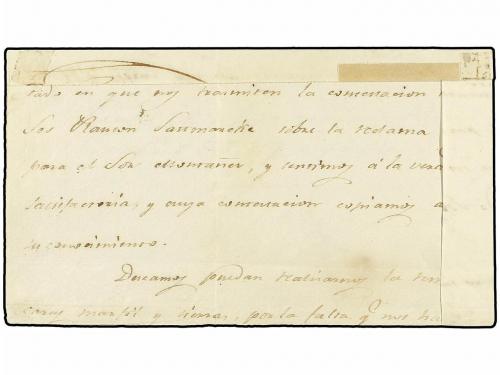 tado en que nos trasmiten la contestacion
Sos Ramon Sanmartin sobre la reclama
para el Sor Montañer, y sentimos á la vera
satisfactoria, y cuya contestacion copiamos a
su conocimiento.
Deseamos puedan realizarnos la
ceras marfil y tierras, por la falta q.e nos ha